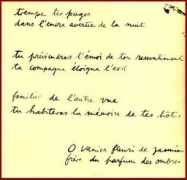 trempe tes pages
dans l'encre avertie de la nuit
tu préserveras l'émoi de ton
ta compagne éloigne l'exil
familier de l'autre vue
tu habiteras la mémoire de tes
O vanier fleuri de jasmin
frère du parfum des ombres